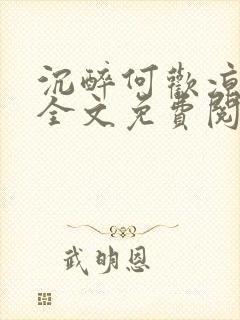 沉醉何歡涼
全文免費閱
武明恩